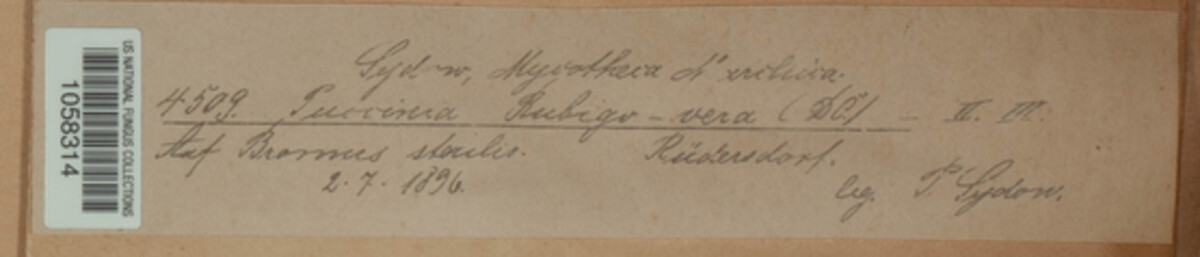 US NATIONAL FUNGUS COLLECTIONS
1058314
Sydow, Mycotheca Marchica.
4509. Puccinia Rubigo-vera (DC.) - II. III.
Auf Bromus sterilis. Rüdersdorf.
2.7.1896. leg. P. Sydow.